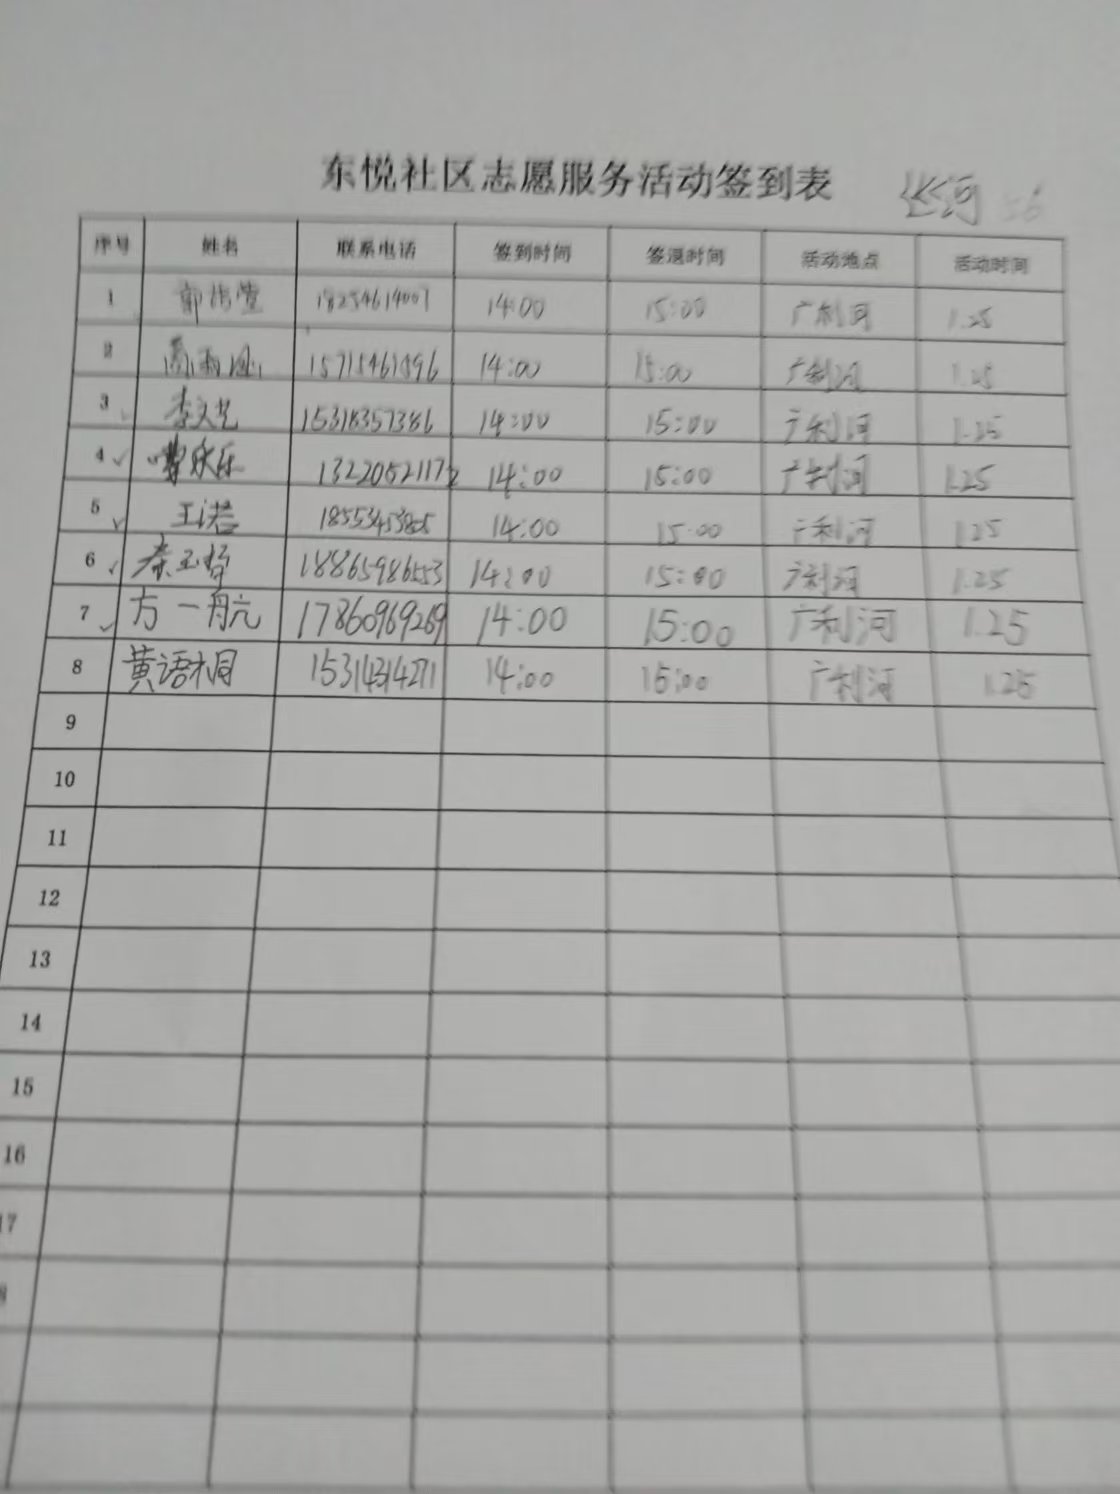 东悦社区志愿服务活动签到表
序号 姓名 联系电话 签到时间 签退时间 活动地点 活动时间
1 14:00 15:00 广利河 1.25
2 14:00 15:00 广利河 1.25
3 李文艺 15318357386 14:00 15:00 广利河 1.25
4 ✓ 永乐 14:00 15:00 广利河 1.25
5 ✓ 王诺 14:00 15:00 广利河 1.25
6 ✓ 秦玉 18865986553 14:00 15:00 广利河 1.25
7 ✓ 方一 17860969269 14:00 15:00 广利河 1.25
8 黄语桐 15314314271 14:00 15:00 广利河 1.25
9
10
11
12
13
14
15
16